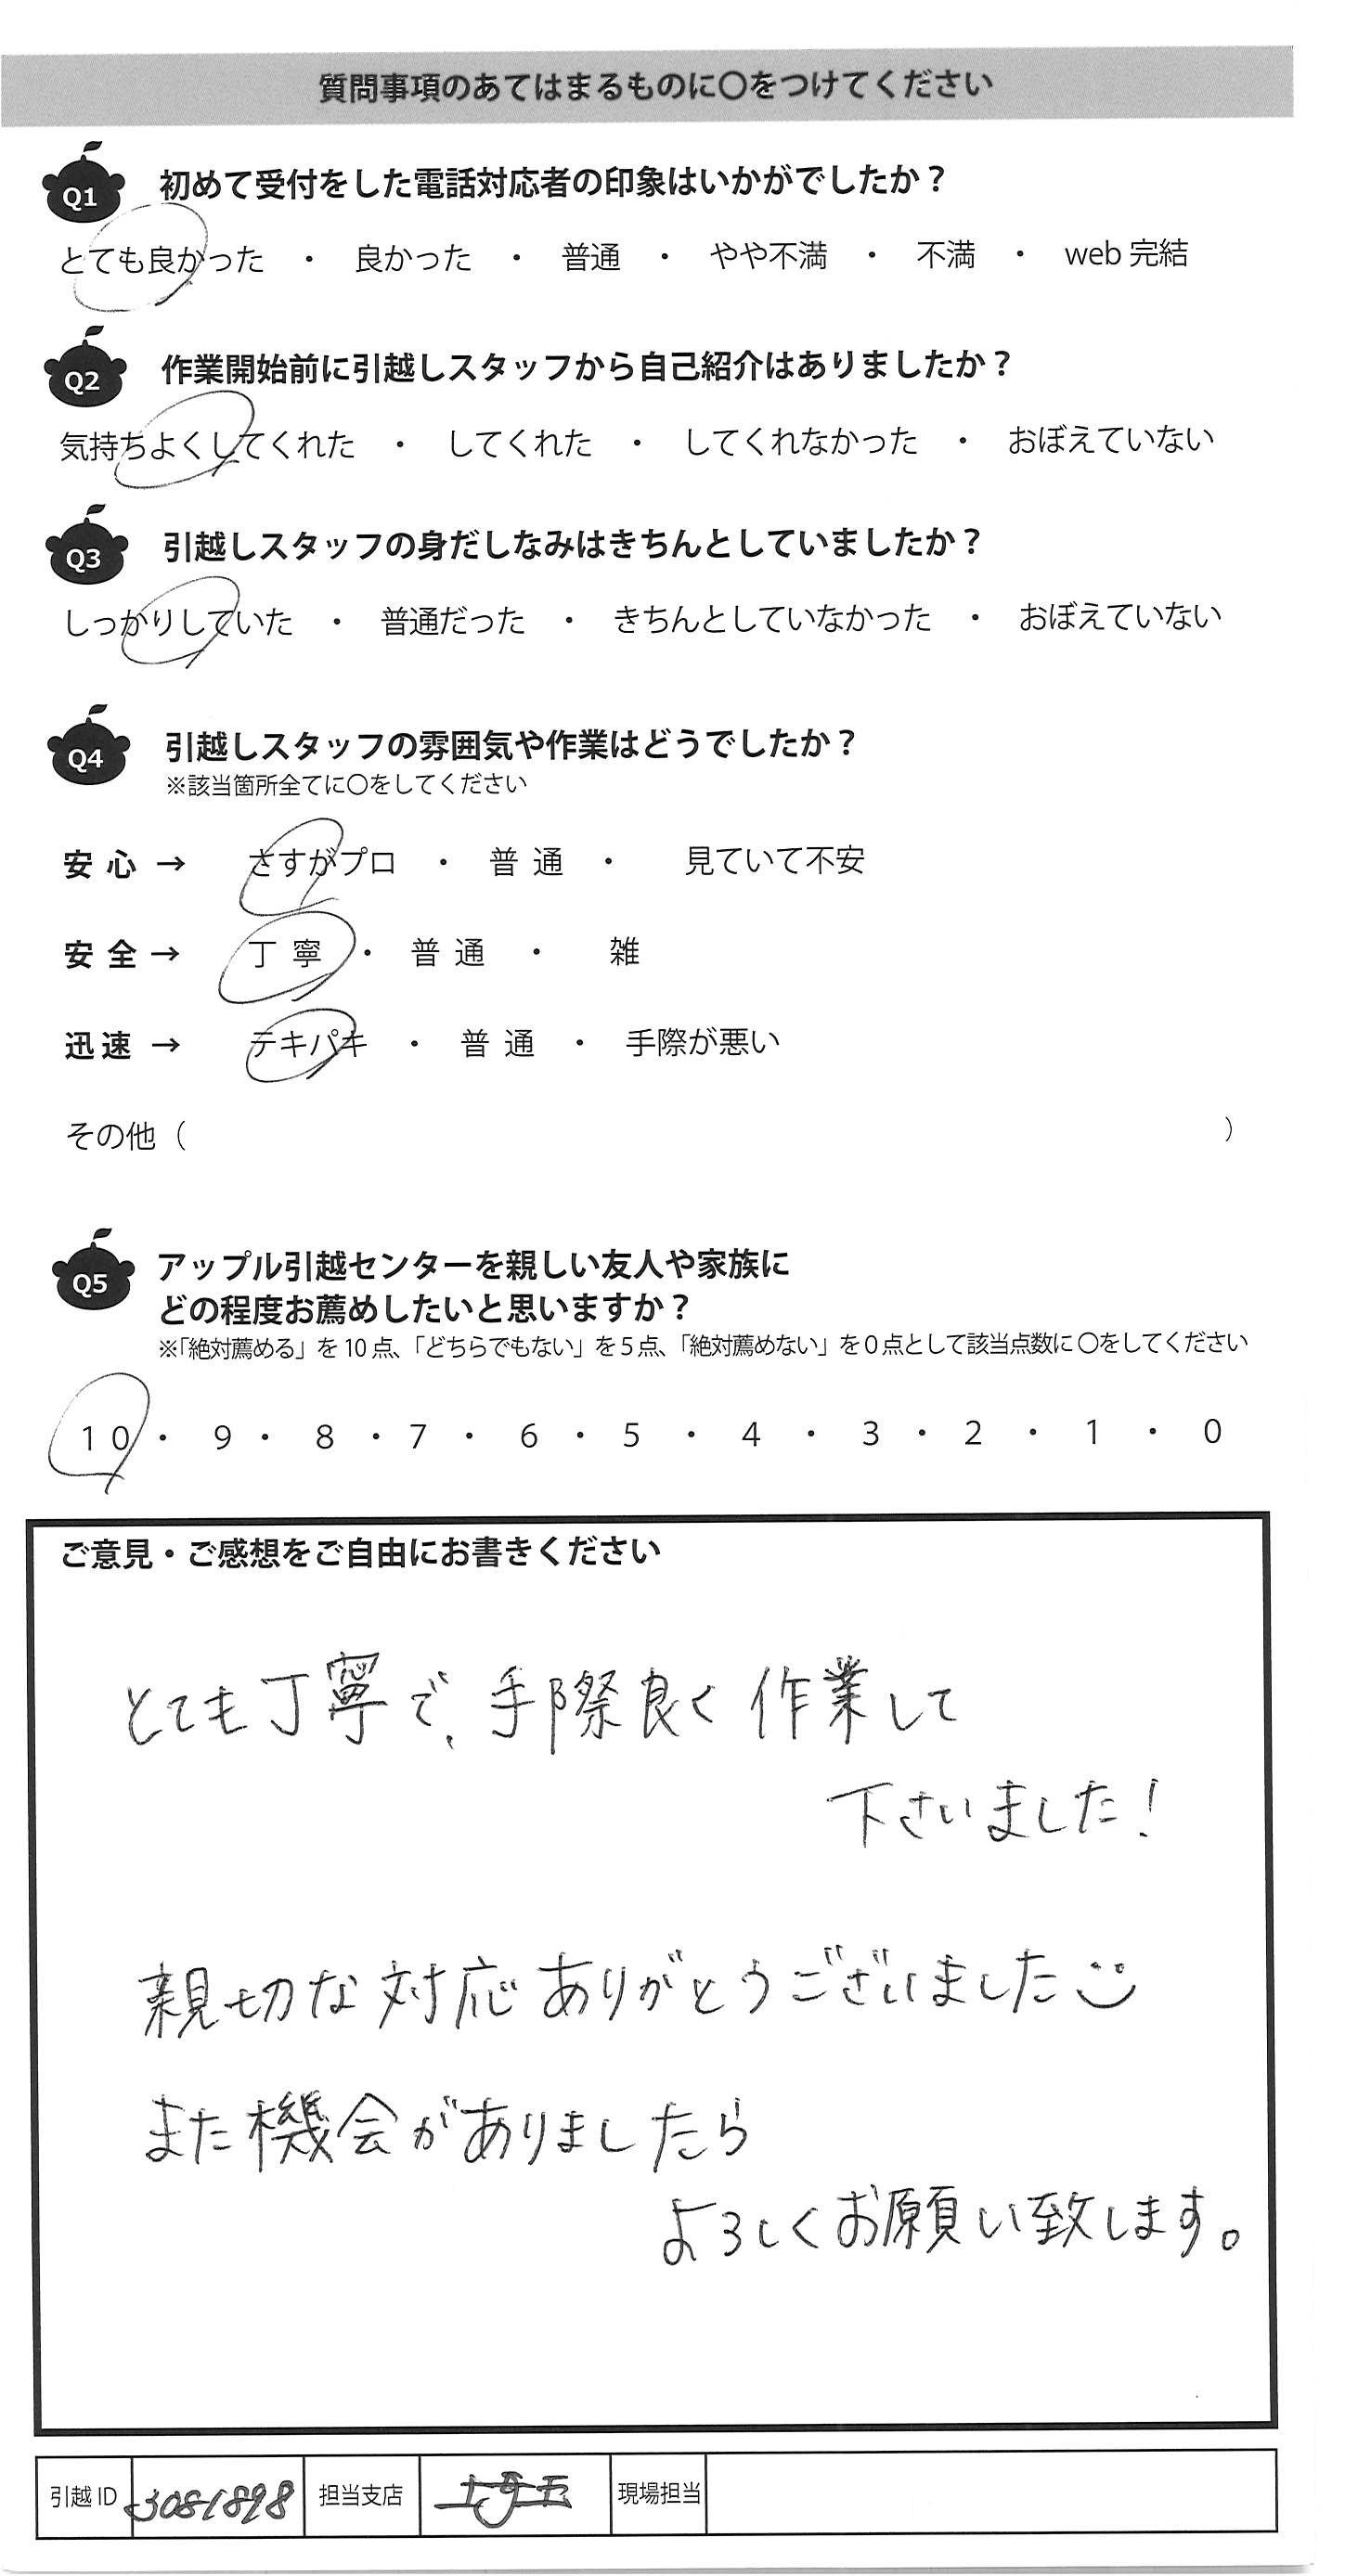 質問事項のあてはまるものに〇をつけてください
Q1 初めて受付をした電話対応者の印象はいかがでしたか？
とても良かった ・ 良かった ・ 普通 ・ やや不満 ・ 不満 ・ web 完結
Q2 作業開始前に引越しスタッフから自己紹介はありましたか？
気持ちよくしてくれた ・ してくれた ・ してくれなかった ・ おぼえていない
Q3 引越しスタッフの身だしなみはきちんとしていましたか？
しっかりしていた ・ 普通だった ・ きちんとしていなかった ・ おぼえていない
Q4 引越しスタッフの雰囲気や作業はどうでしたか？
※該当箇所全てに〇をしてください
安心 → さすがプロ ・ 普通 ・ 見ていて不安
安全 → 丁寧 ・ 普通 ・ 雑
迅速 → テキパキ ・ 普通 ・ 手際が悪い
その他（ ）
Q5 アップル引越センターを親しい友人や家族に
どの程度お薦めしたいと思いますか？
※「絶対薦める」を 10 点、「どちらでもない」を 5 点、「絶対薦めない」を 0 点として該当点数に 〇をしてください
10 ・ 9 ・ 8 ・ 7 ・ 6 ・ 5 ・ 4 ・ 3 ・ 2 ・ 1 ・ 0
ご意見・ご感想をご自由にお書きください
とても丁寧で、手際良く作業して
下さいました！
親切な対応ありがとうございました
また機会がありましたら
よろしくお願い致します。
引越 ID 3081898 担当支店 現場担当